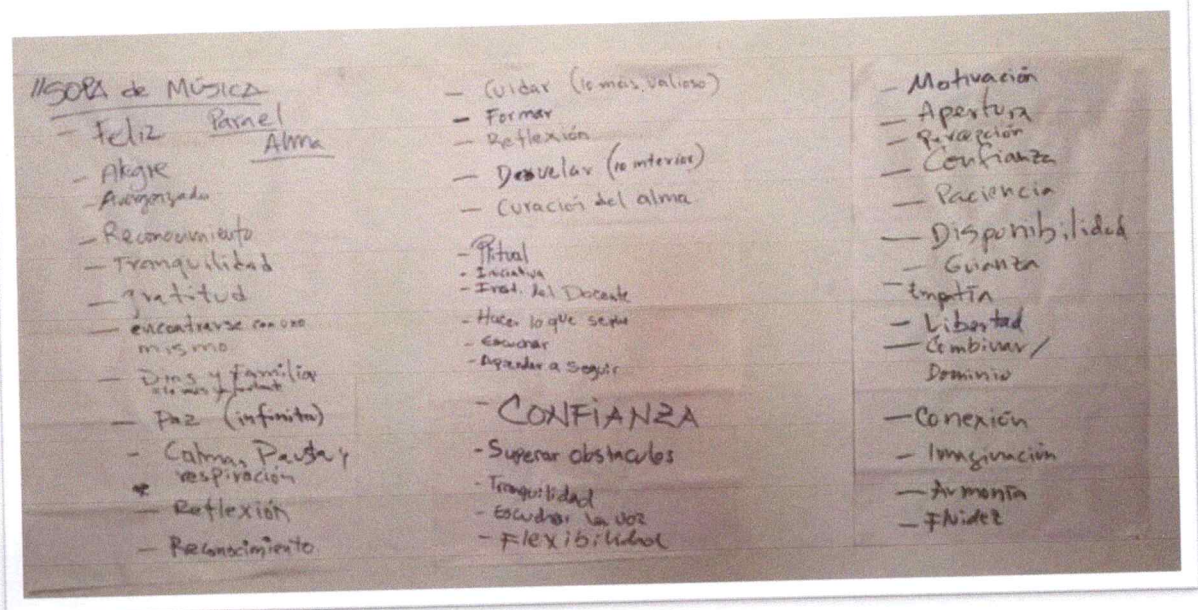 "SOPA de MÚSICA
Para el
Alma
- Feliz
- Alegre
- Avergonzado
- Reconocimiento
- Tranquilidad
- gratitud
- encontrarse con uno
mismo
- Dios y familia
- Paz (infinita)
- Calma, Pausa y
respiración
- Reflexión
- Reconocimiento
- Cuidar (lo más valioso)
- Formar
- Reflexión
- Desvelar (lo interior)
- Curación del alma
- Ritual
- Iniciativa
- del Docente
- Hacer lo que
- Escuchar
- Aprender a seguir
- CONFIANZA
- Superar obstaculos
- Tranquilidad
- Escuchar la voz
- Flexibilidad
- Motivación
- Apertura
- Percepción
- Confianza
- Paciencia
- Disponibilidad
- Guianza
- Empatía
- Libertad
- Combinar/
Dominio
- Conexión
- Imaginación
- Armonía
- Fluidez